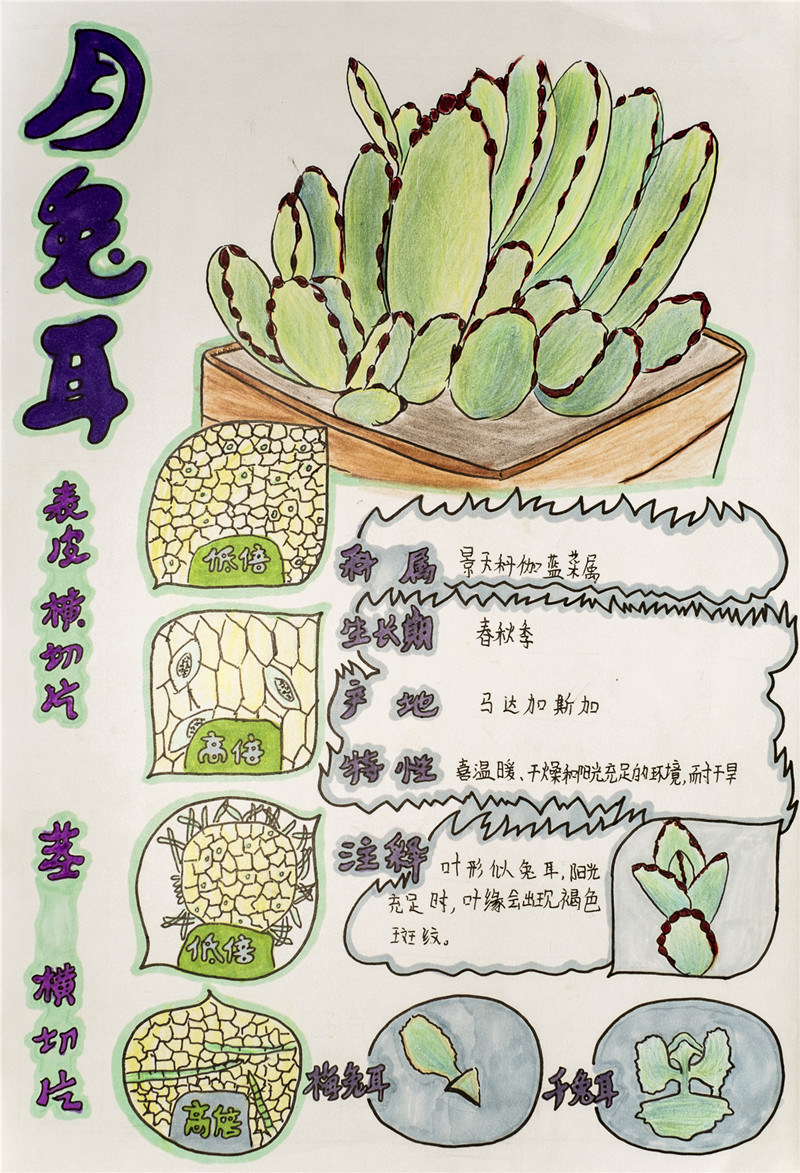 月兔耳
表皮横切片
低倍
高倍
科属 景天科伽蓝菜属
生长期 春秋季
产地 马达加斯加
特性 喜温暖、干燥和阳光充足的环境,而耐干旱
茎横切片
低倍
高倍
注释 叶形似兔耳,阳光
充足时,叶缘会出现褐色
斑纹。
梅兔耳
千兔耳